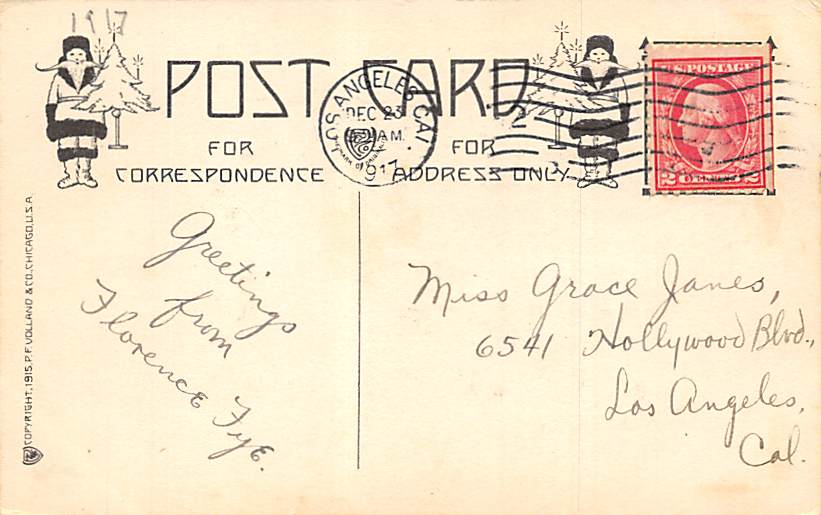 1917
POST CARD
LOS ANGELES CAL
DEC 23
AM
1917
2
U.S. POSTAGE
2 2
FOR
CORRESPONDENCE
FOR
ADDRESS ONLY
COPYRIGHT, 1915, P.F. VOLLAND & CO. CHICAGO, U.S.A.
Greetings
from
Florence Fye.
Miss Grace Janes,
6541 Hollywood Blvd.,
Los Angeles,
Cal.